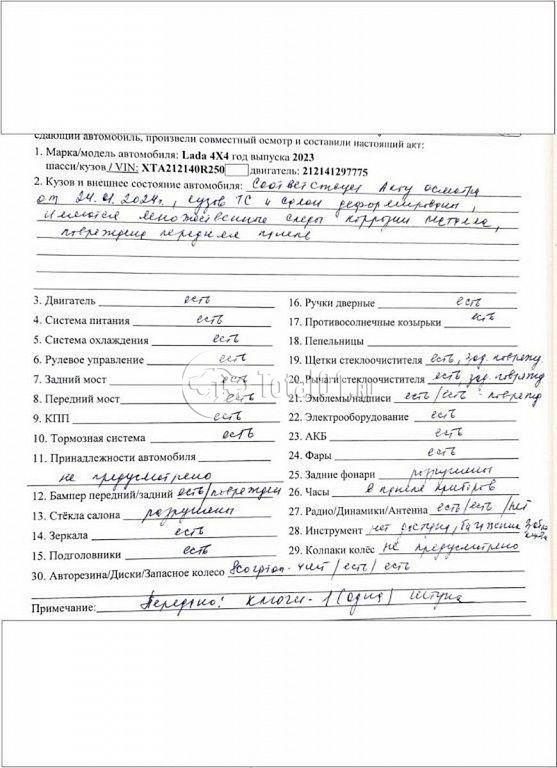 сдающий автомобиль, произвели совместный осмотр и составили настоящий акт:
1. Марка/модель автомобиля: Lada 4X4 год выпуска 2023
шасси/кузов / VIN: XTA212140R250 двигатель: 212141297775
2. Кузов и внешнее состояние автомобиля: Соответствует Акту осмотра
от 24.01.2024г., кузов ТС и салон деформированы,
имеются множественные следы коррозии металла,
повреждена передняя панель
3. Двигатель есть 16. Ручки дверные есть
4. Система питания есть 17. Противосолнечные козырьки есть
5. Система охлаждения есть 18. Пепельницы
6. Рулевое управление есть 19. Щетки стеклоочистителя есть, зад. поврежд
7. Задний мост есть 20. Рычаги стеклоочистителя есть зад. поврежд
8. Передний мост есть 21. Эмблемы/надписи есть/есть - поврежд
9. КПП есть 22. Электрооборудование есть
10. Тормозная система есть 23. АКБ есть
11. Принадлежности автомобиля 24. Фары есть
не предусмотрено 25. Задние фонари разрушены
12. Бампер передний/задний есть/поврежден 26. Часы в панели приборов
13. Стёкла салона разрушены 27. Радио/Динамики/Антенна есть/есть/нет
14. Зеркала есть 28. Инструмент нет доступа, багажник
15. Подголовники есть 29. Колпаки колёс не предусмотрено
30. Авторезина/Диски/Запасное колесо Scorpion - 4шт/есть/есть
Примечание: Передано: ключи - 1 (одна) штука
Total01.ru